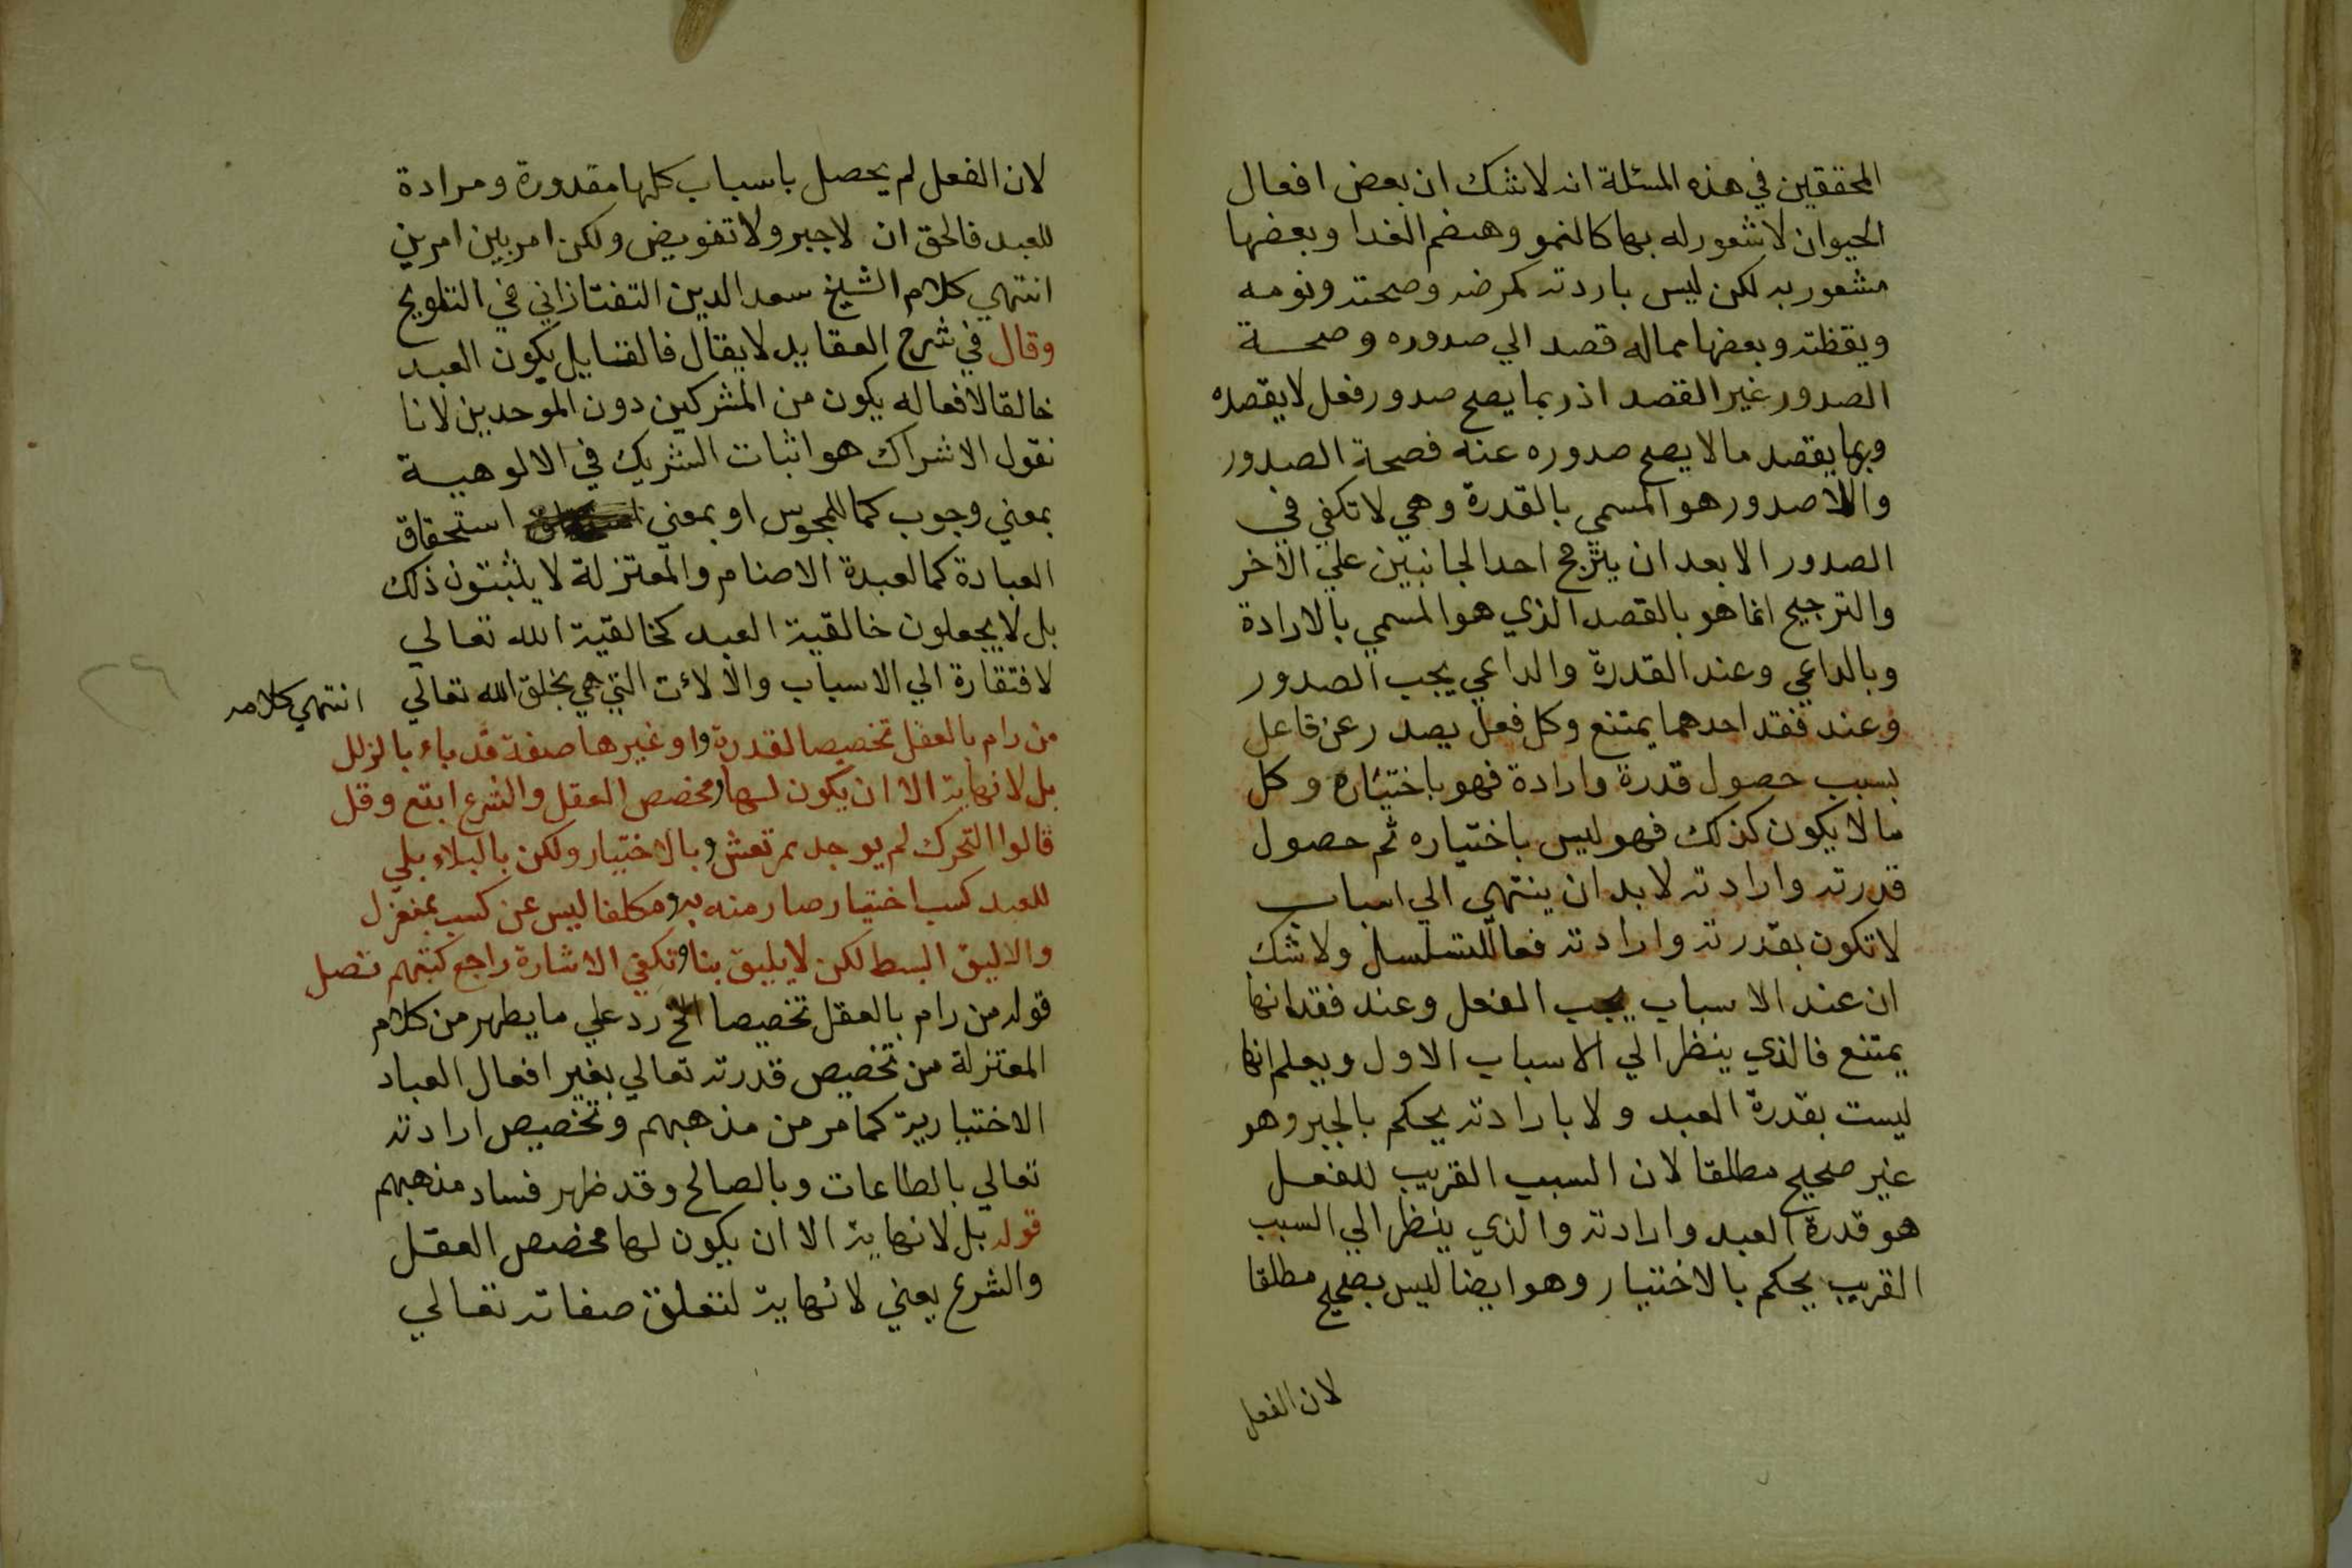 المحققين في هذه المسئلة انه لا شك ان بعض افعال
الحيوان لا شعور له بها كالنمو وهضم الغدا وبعضها
مشعور به لكن ليس باردته كمرضه وصحته ونومه
ويقظته وبعضها مما له قصد الي صدوره وصحـــة
الصدور غير القصد اذ ربما يصح صدور فعل لا يقصده
وربما يقصد ما لا يصح صدوره عنه فصحة الصدور
واللاصدور هو المسمي بالقدرة وهي لا تكفي في
الصدور الا بعد ان يترجح احد الجانبين علي الاخر
والترجيح انما هو بالقصد الذي هو المسمي بالارادة
وبالداعي وعند القدرة والداعي يجب الصدور
وعند فقد احدهما يمتنع وكل فعل يصدر عن فاعل
بسبب حصول قدرة وارادة فهو باختياره وكل
ما لا يكون كذلك فهو ليس باختياره ثم حصول
قدرته وارادته لا بد ان ينتهي الي اسباب
لا تكون بقدرته وارادته فعا للتسلسل ولا شك
ان عند الاسباب يجب الفعل وعند فقدانها
يمتنع فالذي ينظر الي الاسباب الاول ويعلم انها
ليست بقدرة العبد ولا بارادته يحكم بالجبر وهو
غير صحيح مطلقا لان السبب القريب للفعـل
هو قدرة العبد وارادته والذي ينظر الي السبب
القريب يحكم بالاختيار وهو ايضا ليس بصحيح مطلقا
لان الفعل
لان الفعل لم يحصل باسباب كلها مقدورة ومرادة
للعبد فالحق ان لا جبر ولا تفويض ولكن امر بين امرين
انتهي كلام الشيخ سعد الدين التفتازاني في التلويح
وقال في شرح العقايد لا يقال فالقايل يكون العبد
خالقا لافعاله يكون من المشركين دون الموحدين لانا
نقول الاشراك هو اثبات الشريك في الالوهيـــة
بمعني وجوب كما للمجوس او بمعني استحقاق
العبادة كما لعبدة الاصنام والمعتزلة لا يثبتون ذلك
بل لا يجعلون خالقية العبد كخالقية الله تعالي
لافتقارة الي الاسباب والالات التي هي بخلق الله تعالي انتهي كلامه
من رام بالعقل تخصيصا لقدرته او غيرها صفة قد باء بالزلل
بل لا نهاية الا ان يكون لها مخصص العقل والشرع ابتع وقل
قالوا التحرك لم يوجد بمرتعش وبالاختيار ولكن بالبلاء بلي
للعبد كسب اختيار صار منه به ومكلفا ليس عن كسب بمنعزل
والاليق البسط لكن لا يليق بنا وتكفي الاشارة راجع كتبهم تصل
قوله من رام بالعقل تخصيصا الخ رد علي ما يظهر من كلام
المعتزلة من تخصيص قدرته تعالي بغير افعال العباد
الاختيارية كما مر من مذهبهم وتخصيص ارادته
تعالي بالطاعات وبالصالح وقد ظهر فساد مذهبهم
قوله بل لا نهاية الا ان يكون لها مخصص العقـل
والشرع يعني لا نهاية لتعلق صفاته تعالي